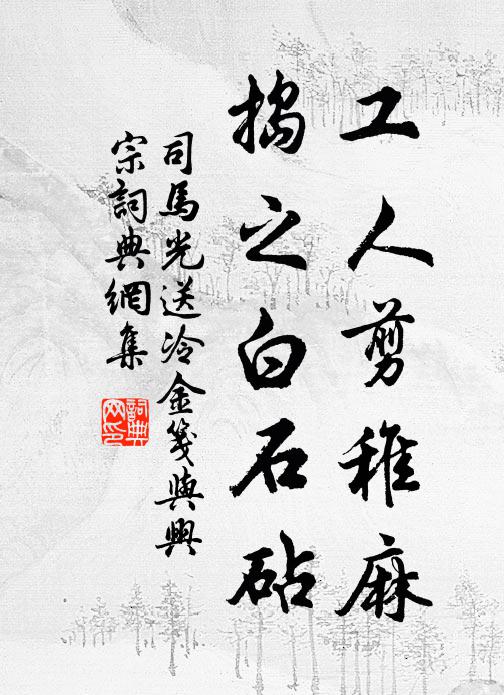 工人剪稚麻
搗之白石砧
司馬光送冷金箋與興
宗詞典網集
詞典
网印